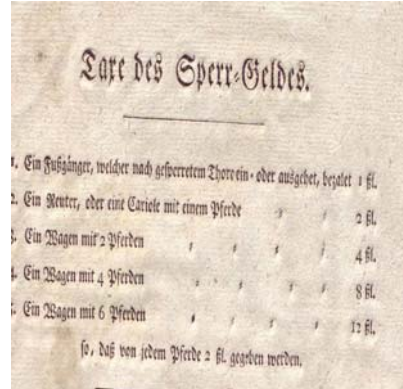 Taxe des Sperr-Geldes.
1. Ein Fußgänger, welcher nach gesperretem Thore ein- oder ausgehet, bezalet 1 ßl.
2. Ein Reuter, oder eine Cariole mit einem Pferde 〃 〃 2 ßl.
3. Ein Wagen mit 2 Pferden 〃 〃 〃 〃 4 ßl.
4. Ein Wagen mit 4 Pferden 〃 〃 〃 〃 8 ßl.
5. Ein Wagen mit 6 Pferden 〃 〃 〃 〃 12 ßl.
so, daß von jedem Pferde 2 ßl. gegeben werden.